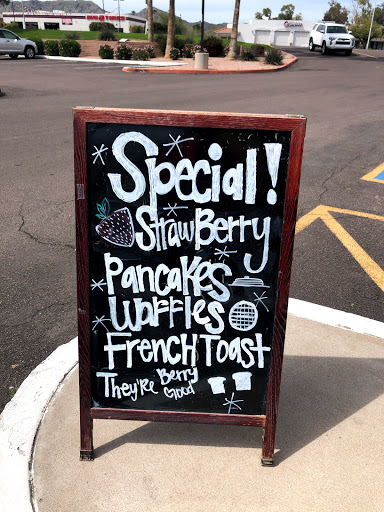 Special!
StrawBerry
PancaKes
Waffles
French Toast
They're Berry
Good